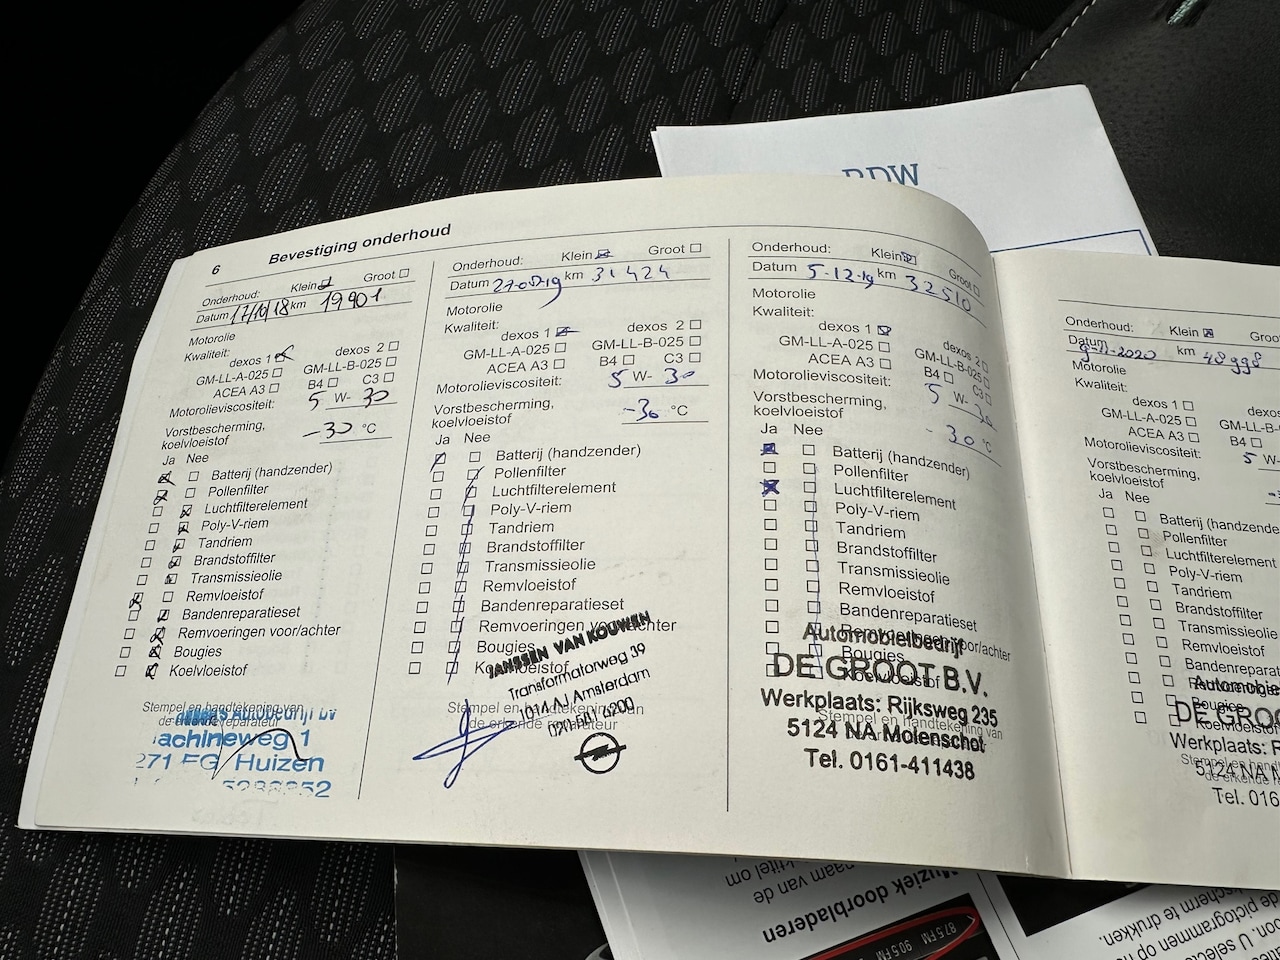 RDW
6 Bevestiging onderhoud
Onderhoud: Klein Groot
Datum 17/10/18 km 19901
Motorolie
Kwaliteit:
dexos 1 dexos 2
GM-LL-A-025 GM-LL-B-025
ACEA A3 B4 C3
Motorolieviscositeit: 5 W- 30
Vorstbescherming,
koelvloeistof -30 °C
Ja Nee
Batterij (handzender)
Pollenfilter
Luchtfilterelement
Poly-V-riem
Tandriem
Brandstoffilter
Transmissieolie
Remvloeistof
Bandenreparatieset
Remvoeringen voor/achter
Bougies
Koelvloeistof
Stempel en handtekening van
de reparateur
Autobedrijf bv
achineweg 1
271 EG Huizen
Onderhoud: Klein Groot
Datum 27-05-19 km 31424
Motorolie
Kwaliteit:
dexos 1 dexos 2
GM-LL-A-025 GM-LL-B-025
ACEA A3 B4 C3
Motorolieviscositeit: 5 W- 30
Vorstbescherming,
koelvloeistof -30 °C
Ja Nee
Batterij (handzender)
Pollenfilter
Luchtfilterelement
Poly-V-riem
Tandriem
Brandstoffilter
Transmissieolie
Remvloeistof
Bandenreparatieset
Remvoeringen voor/achter
Bougies
Koelvloeistof
JANSSEN VAN KOUWEN
Transformatorweg 39
1014 AJ Amsterdam
Stempel en handtekening van
de erkende reparateur
Onderhoud: Klein Groot
Datum 5-12-19 km 32510
Motorolie
Kwaliteit:
dexos 1 dexos 2
GM-LL-A-025 GM-LL-B-025
ACEA A3 B4 C3
Motorolieviscositeit: 5 W- 30
Vorstbescherming,
koelvloeistof -30 °C
Ja Nee
Batterij (handzender)
Pollenfilter
Luchtfilterelement
Poly-V-riem
Tandriem
Brandstoffilter
Transmissieolie
Remvloeistof
Bandenreparatieset
Remvoeringen voor/achter
Bougies
Koelvloeistof
Stempel en handtekening van
Automobielbedrijf
DE GROOT B.V.
Werkplaats: Rijksweg 235
5124 NA Molenschot
Tel. 0161-411438
Onderhoud: Klein Groo
Datum 9-11-2020 km 48998
Motorolie
Kwaliteit:
dexos 1
GM-LL-A-025 GM-LL-B-
ACEA A3 B4
Motorolieviscositeit: 5 W-
Vorstbescherming,
koelvloeistof
Ja Nee
Batterij (handzende
Pollenfilter
Luchtfilterelement
Poly-V-riem
Tandriem
Brandstoffilter
Transmissieolie
Remvloeistof
Bandenreparat
Bougies
Koelvloeistof
Automobie
DE GROO
Werkplaats: R
5124 NA M
Tel. 016
Muziek doorbladeren
naam van de
titel om
87.5 FM 90.5 FM
oon. U selecte
de pictogrammen op h
scherm te drukken.